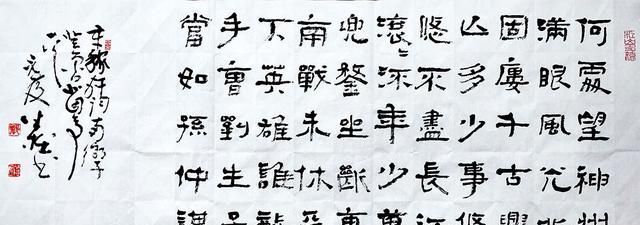 何處望神州
滿眼風光北
固廔千古興
亾多少事悠
悠不盡長江
滾〻流年少萬
兜鍪坐斷東
南戰未休
下英雄誰
手曹劉生
當如孫仲謀
辛稼軒詞南鄉子